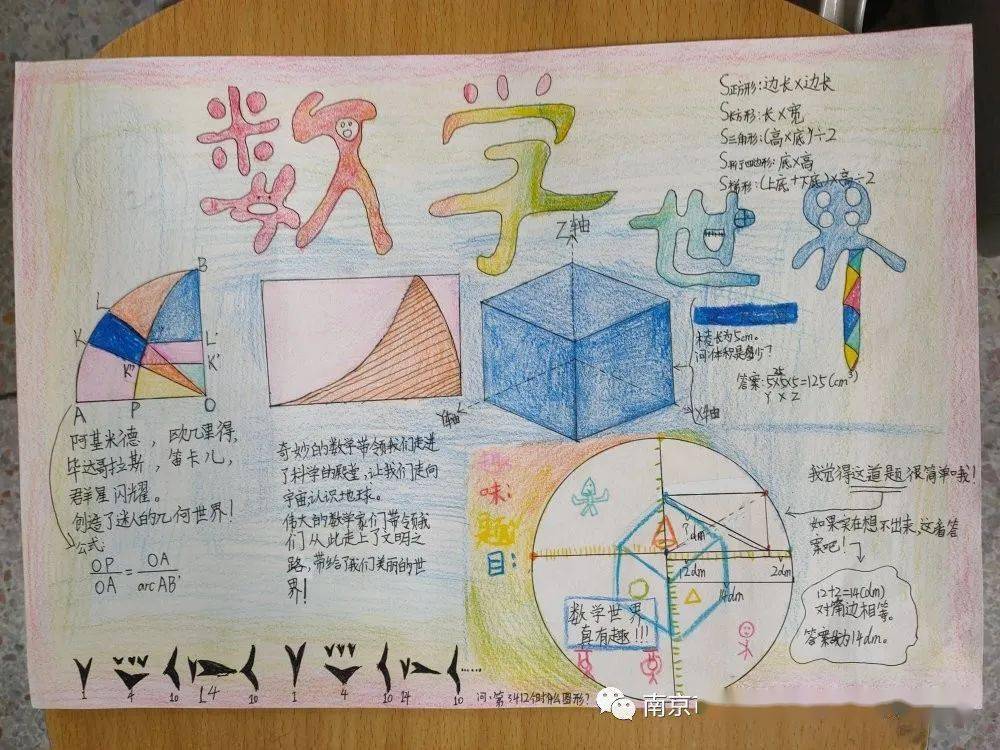 数学世界
S正方形:边长×边长
S长方形:长×宽
S三角形:(高×底)÷2
S平行四边形:底×高
S梯形:(上底+下底)×高÷2
B
L
K
L'
K'
K"
A
P
O
阿基米德,欧几里得,
毕达哥拉斯,笛卡儿,
群星闪耀。
创造了迷人的几何世界!
公式:
OP/OA=OA/arcAB'
奇妙的数学带领我们走进
了科学的殿堂,让我们走向
宇宙认识地球。
伟大的数学家们带领我
们从此走上了文明之
路,带给了我们美丽的世
界!
Z轴
Y轴
X轴
棱长为5cm。
问体积是多少?
答案:5×5×5=125(cm³)
25
Y X Z
趣味题目:
?dm
12dm
2dm
14dm
数学世界
真有趣!!!
我觉得这道题很简单哦!
如果实在想不出来,这看答
案吧!
12+2=14(dm)
对角边相等。
答案为14dm。
1 4 10 14 10 1 4 10 14 10 ……
问:第3412个时什么图形?
南京